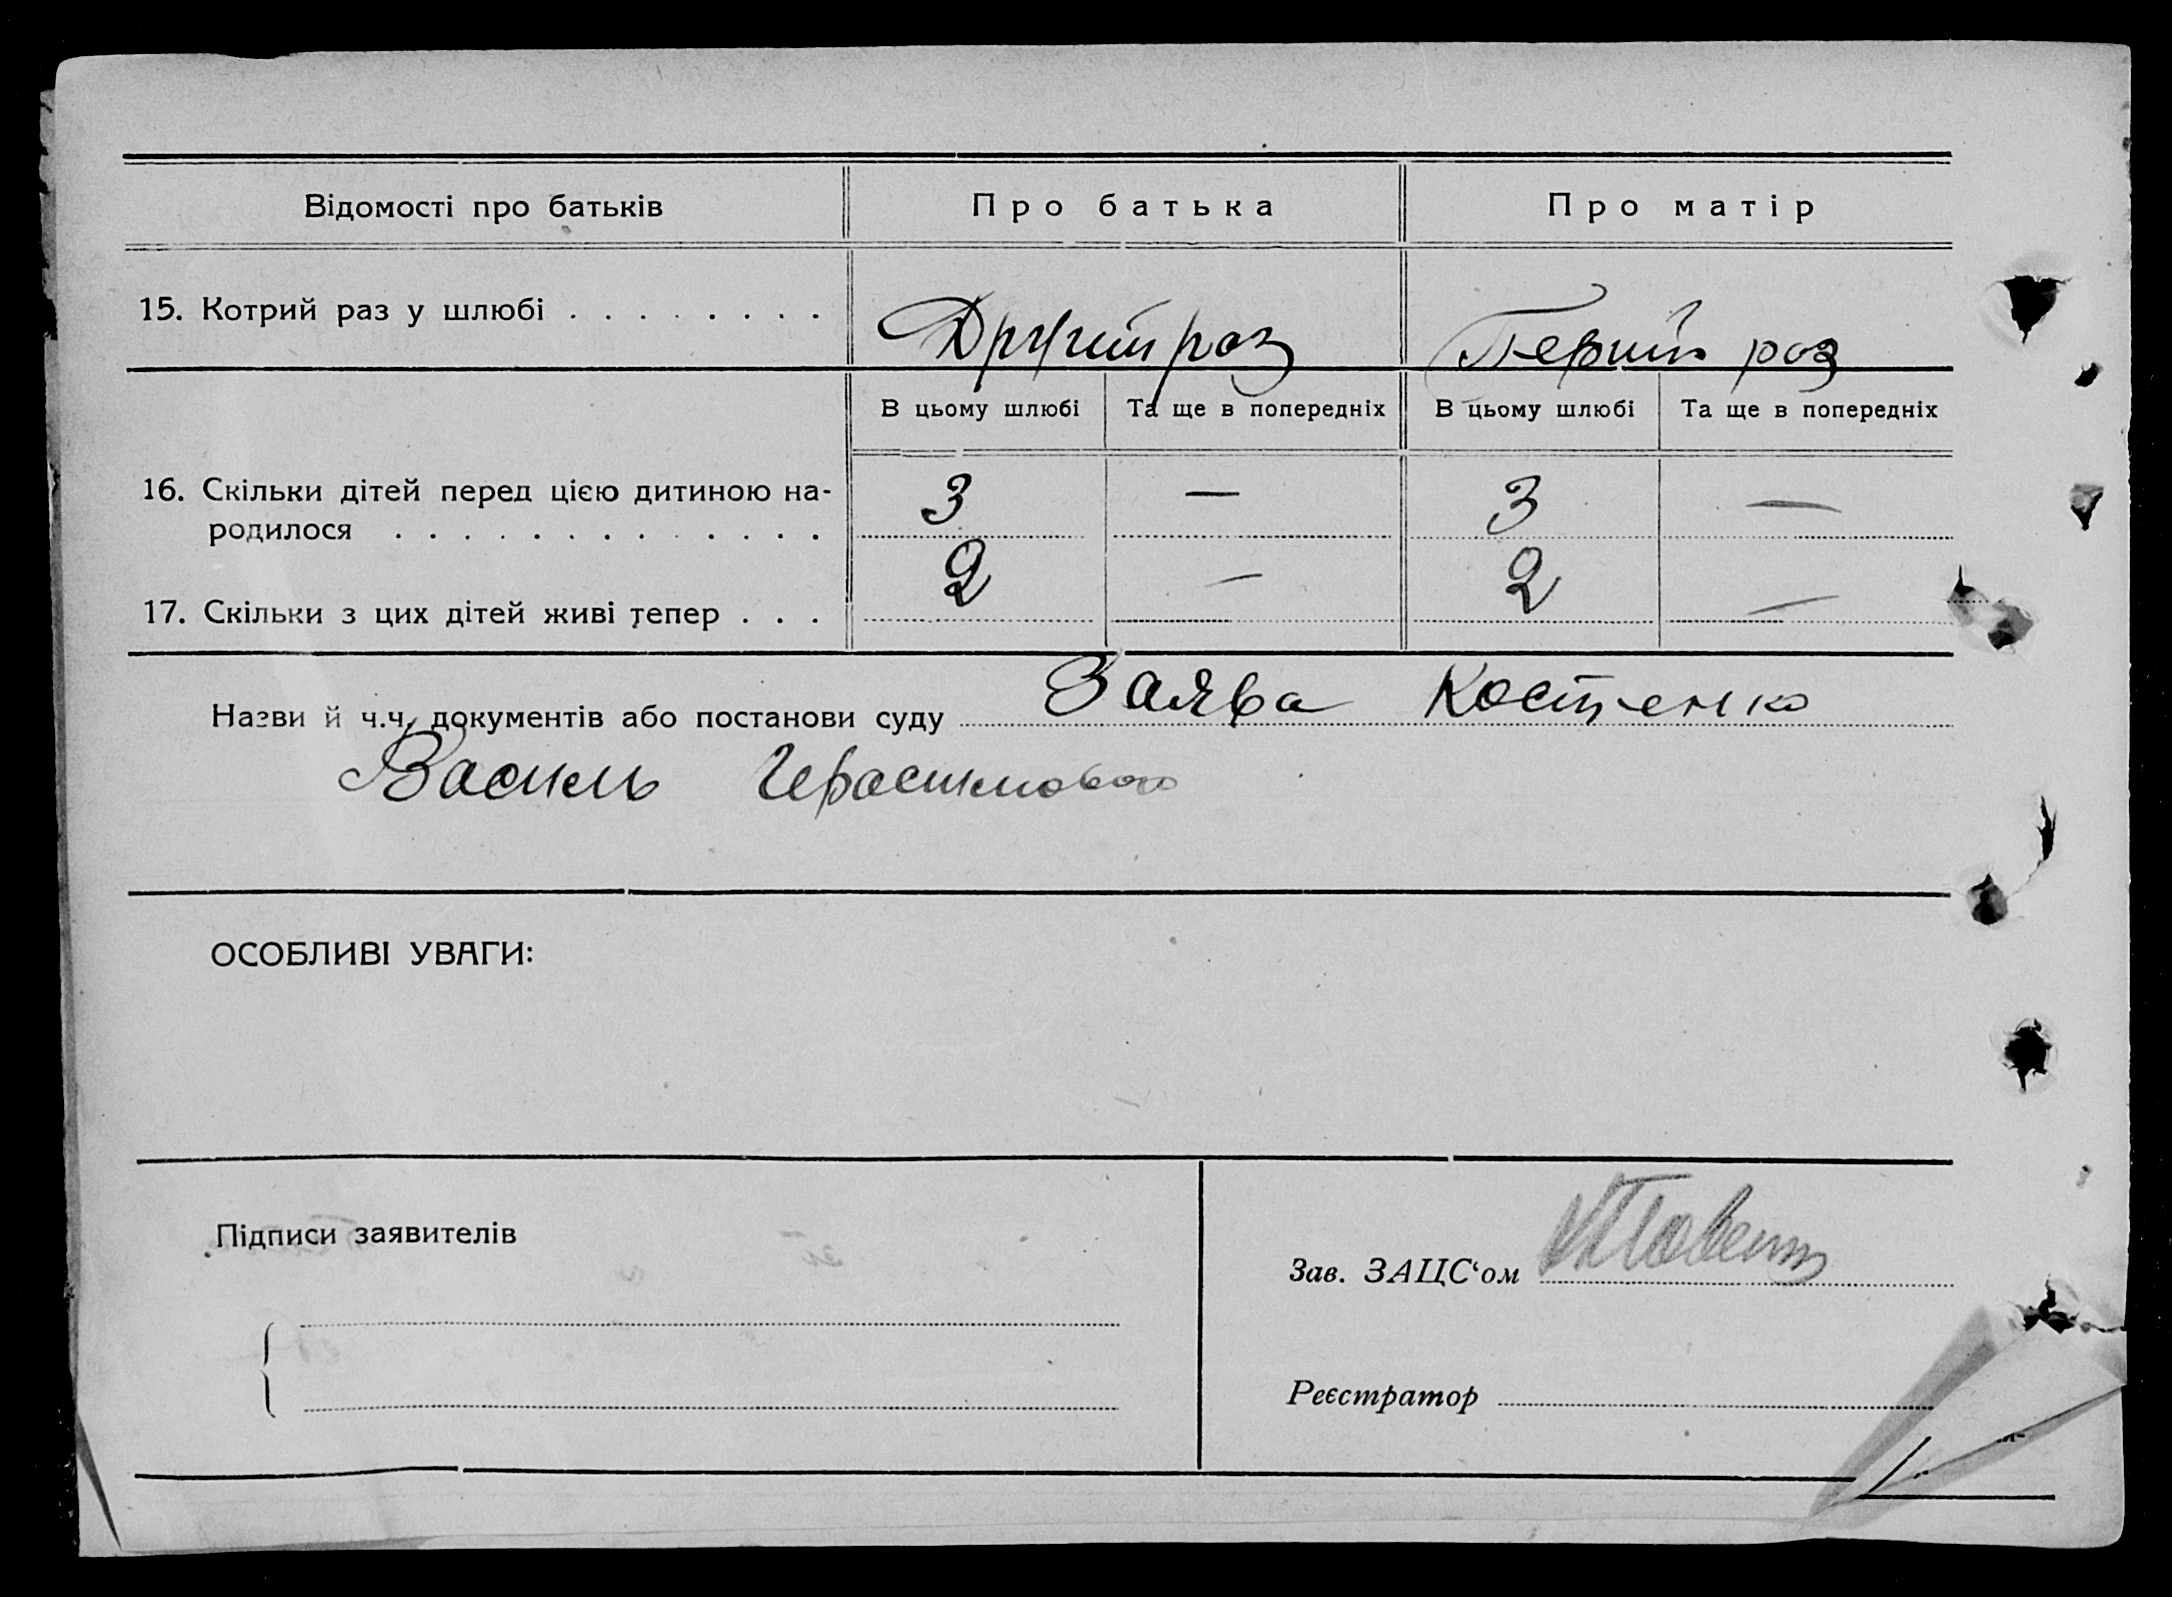 Відомості про батьків Про батька Про матір
15. Котрий раз у шлюбі . . . . . . . . Другий раз Перший раз
В цьому шлюбі Та ще в попередніх В цьому шлюбі Та ще в попередніх
16. Скільки дітей перед цією дитиною на- 3 — 3 —
родилося . . . . . . . . . . . . .
17. Скільки з цих дітей живі тепер . . . 2 — 2 —
Назви й ч.ч. документів або постанови суду Заява Костенко
Василь Герасимового
ОСОБЛИВІ УВАГИ:
Підписи заявителів
Зав. ЗАЦС‘ом
Реєстратор